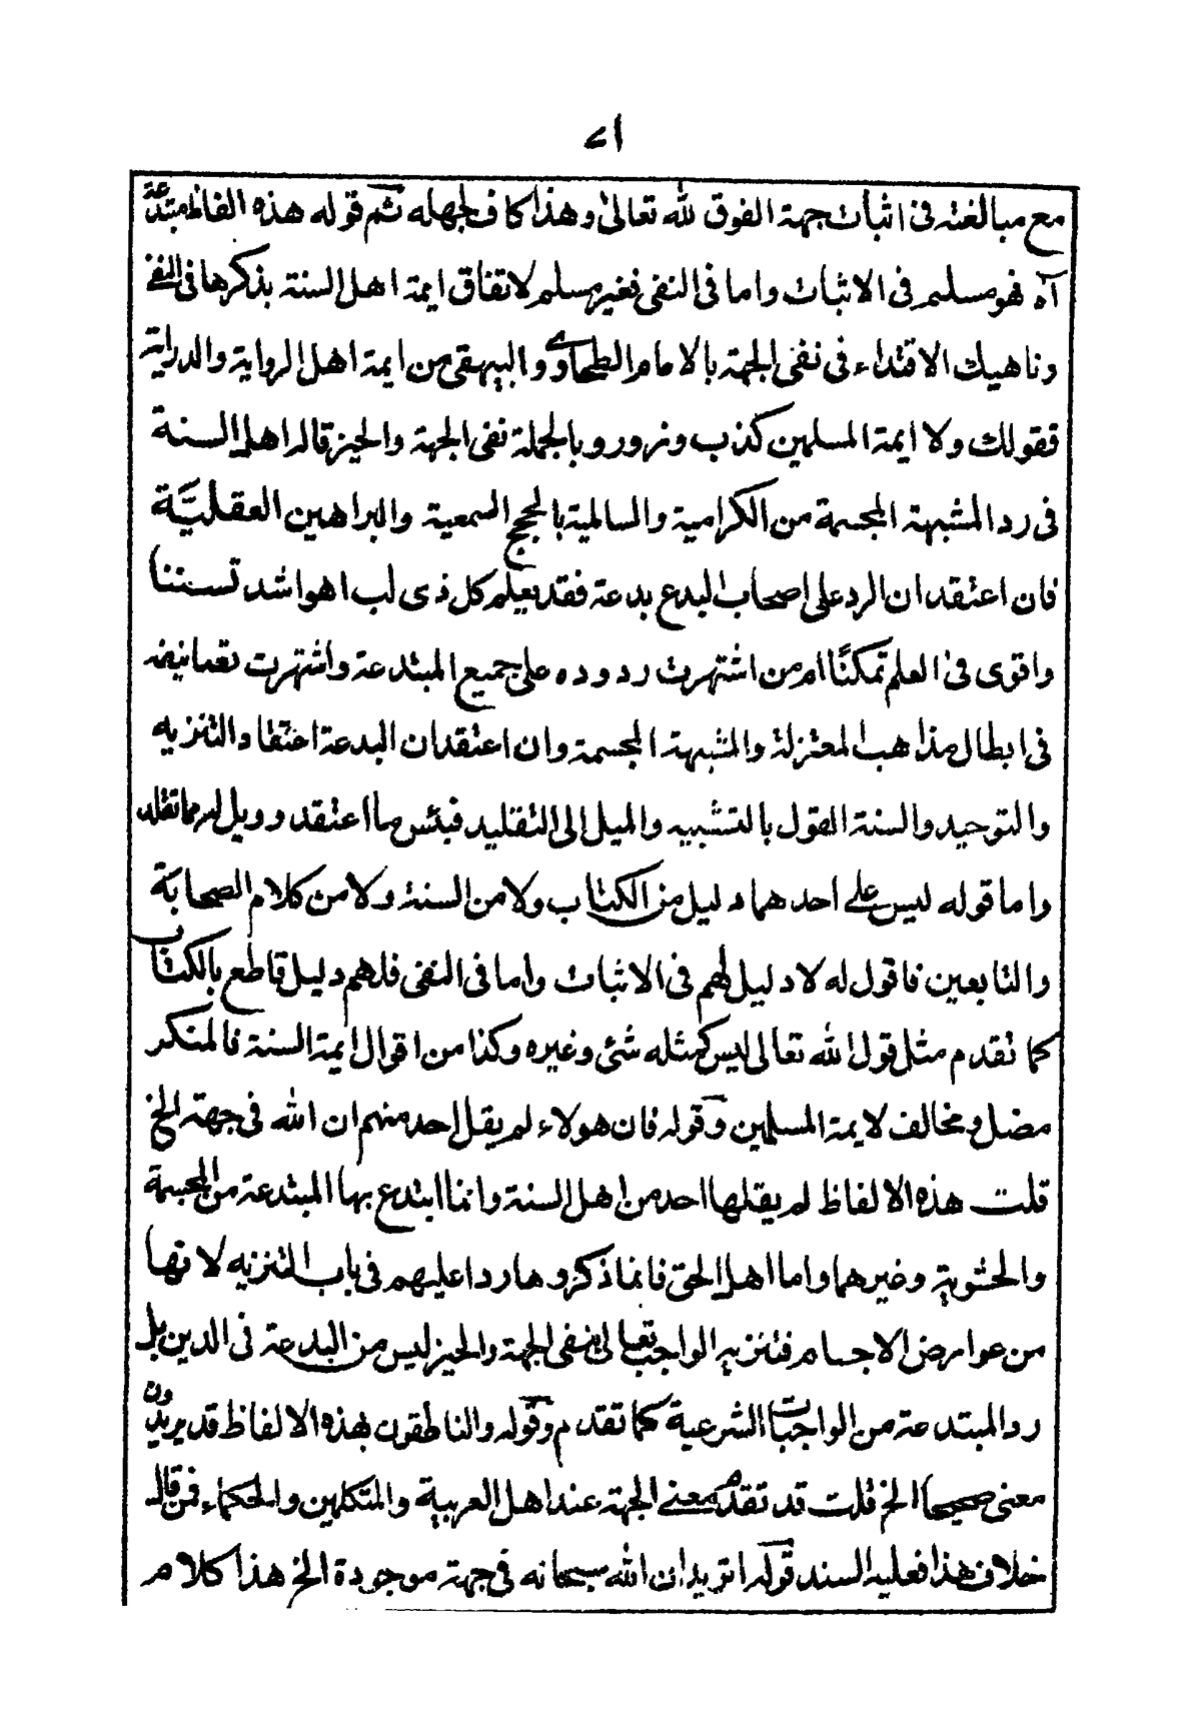 ٧١
مع مبالغته فى اثبات جهة الفوق لله تعالى وهذا كاف لجهله ثم قوله هذه الفاظ مبتدعة
آه فهو مسلم فى الاثبات واما فى النفى فغير مسلم لاتفاق ايمة اهل السنة بذكرها فى النفى
وناهيك الاقتداء فى نفى الجهة بالامام الطحاوى والبيهقى من ايمة اهل الرواية والدراية
فقولك ولا ايمة المسلمين كذب وزور وبالجملة نفى الجهة والحيز قاله اهل السنة
فى رد المشبهة المجسمة من الكرامية والسالمية بالحجج السمعية والبراهين العقليَّة
فان اعتقد ان الرد على اصحاب البدع بدعة فقد يعلم كل ذى لب اهو اشد تسننا
واقوى فى العلم تمكنًا ام من اشتهرت ردوده على جميع المبتدعة واشتهرت تصانيفه
فى ابطال مذاهب المعتزلة والمشبهة المجسمة وان اعتقد ان البدعة اعتقاد التنزيه
والتوحيد والسنة القول بالتشبيه والميل الى التقليد فبئس ما اعتقد وويل له مما تقلد
واما قوله ليس على احدهما دليل من الكتاب ولا من السنة ولا من كلام الصحابة
والتابعين فاقول له لا دليل لهم فى الاثبات واما فى النفى فلهم دليل قاطع بالكتاب
كما تقدم مثل قول الله تعالى ليس كمثله شئ وغيره وكذا من اقوال ايمة السنة فالمنكر
مضل ومخالف لايمة المسلمين وقوله فان هولاء لم يقل احد منهم ان الله فى جهة الخ
قلت هذه الالفاظ لم يقلها احد من اهل السنة وانما ابتدع بها المبتدعة من المجسمة
والحشوية وغيرهما واما اهل الحق فانما ذكروها ردا عليهم فى باب التنزيه لانها
من عوارض الاجسام فتنزيه الواجب تعالى بنفى الجهة والحيز ليس من البدعة فى الدين بل
رد المبتدعة من الواجبات الشرعية كما تقدم وقوله والناطقون بهذه الالفاظ قد يريدون
معنى صحيحا الخ قلت قد تقدم معنى الجهة عند اهل العربية والمتكلمين والحكماء فمن قال
خلاف هذا فعليه السند قوله اتريد ان الله سبحانه فى جهة موجودة الخ هذا كلام